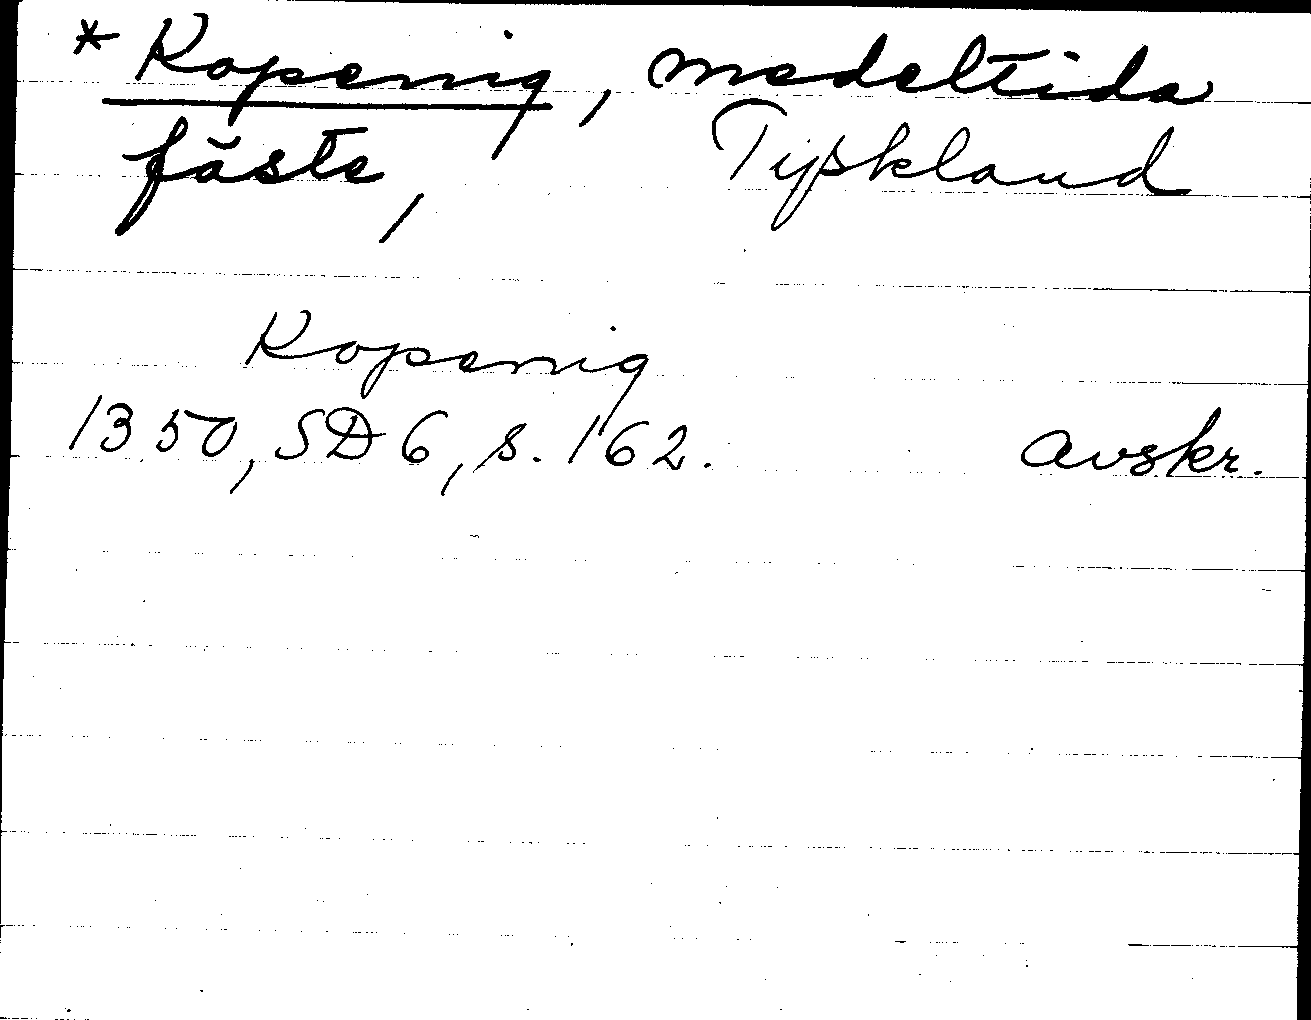 * Kopenig, medeltida
fäste, Tyskland
Kopenig
1350, SD 6, s. 162. avskr.